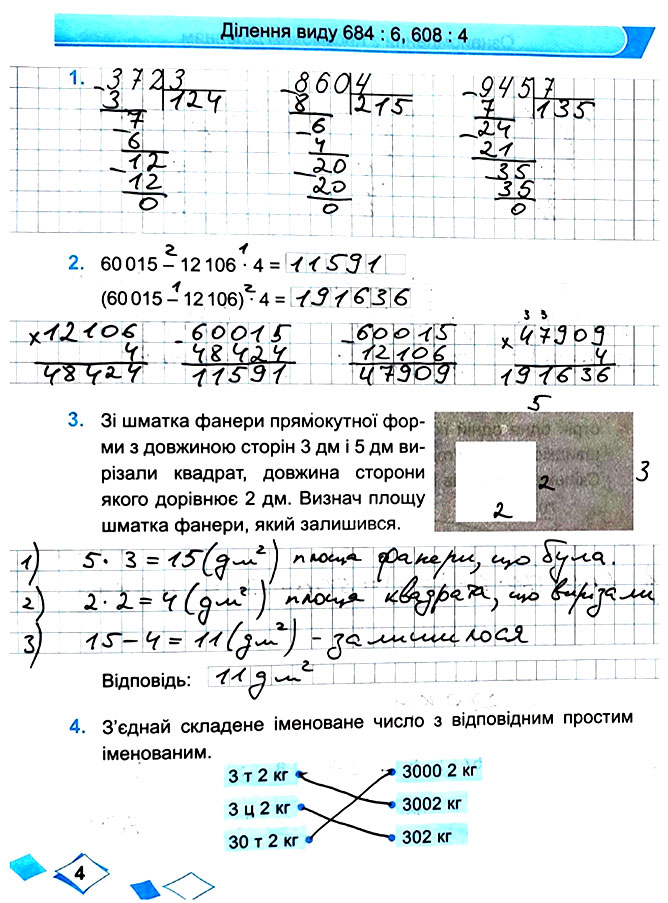 Ділення виду 684 : 6, 608 : 4
1. 372 3 8604 945 7
3 124 8 215 7 135
7 6 24
6 4 21
12 20 35
12 20 35
0 0 0
2 1
2. 60 015 – 12 106 · 4 = 11591
1 2
(60 015 – 12 106) · 4 = 191636
3 3
×12106 -60015 -60015 ×47909
4 48424 12106 4
48424 11591 47909 191636
5
3. Зі шматка фанери прямокутної фор-
ми з довжиною сторін 3 дм і 5 дм ви-
різали квадрат, довжина сторони
якого дорівнює 2 дм. Визнач площу
шматка фанери, який залишився.
3
2
2
1) 5 · 3 = 15 (дм²) площа фанери, що була.
2) 2 · 2 = 4 (дм²) площа квадрата, що вирізали
3) 15 – 4 = 11 (дм²) - залишилося
Відповідь: 11 дм²
4. З’єднай складене іменоване число з відповідним простим
іменованим.
3 т 2 кг 3000 2 кг
3 ц 2 кг 3002 кг
30 т 2 кг 302 кг
4